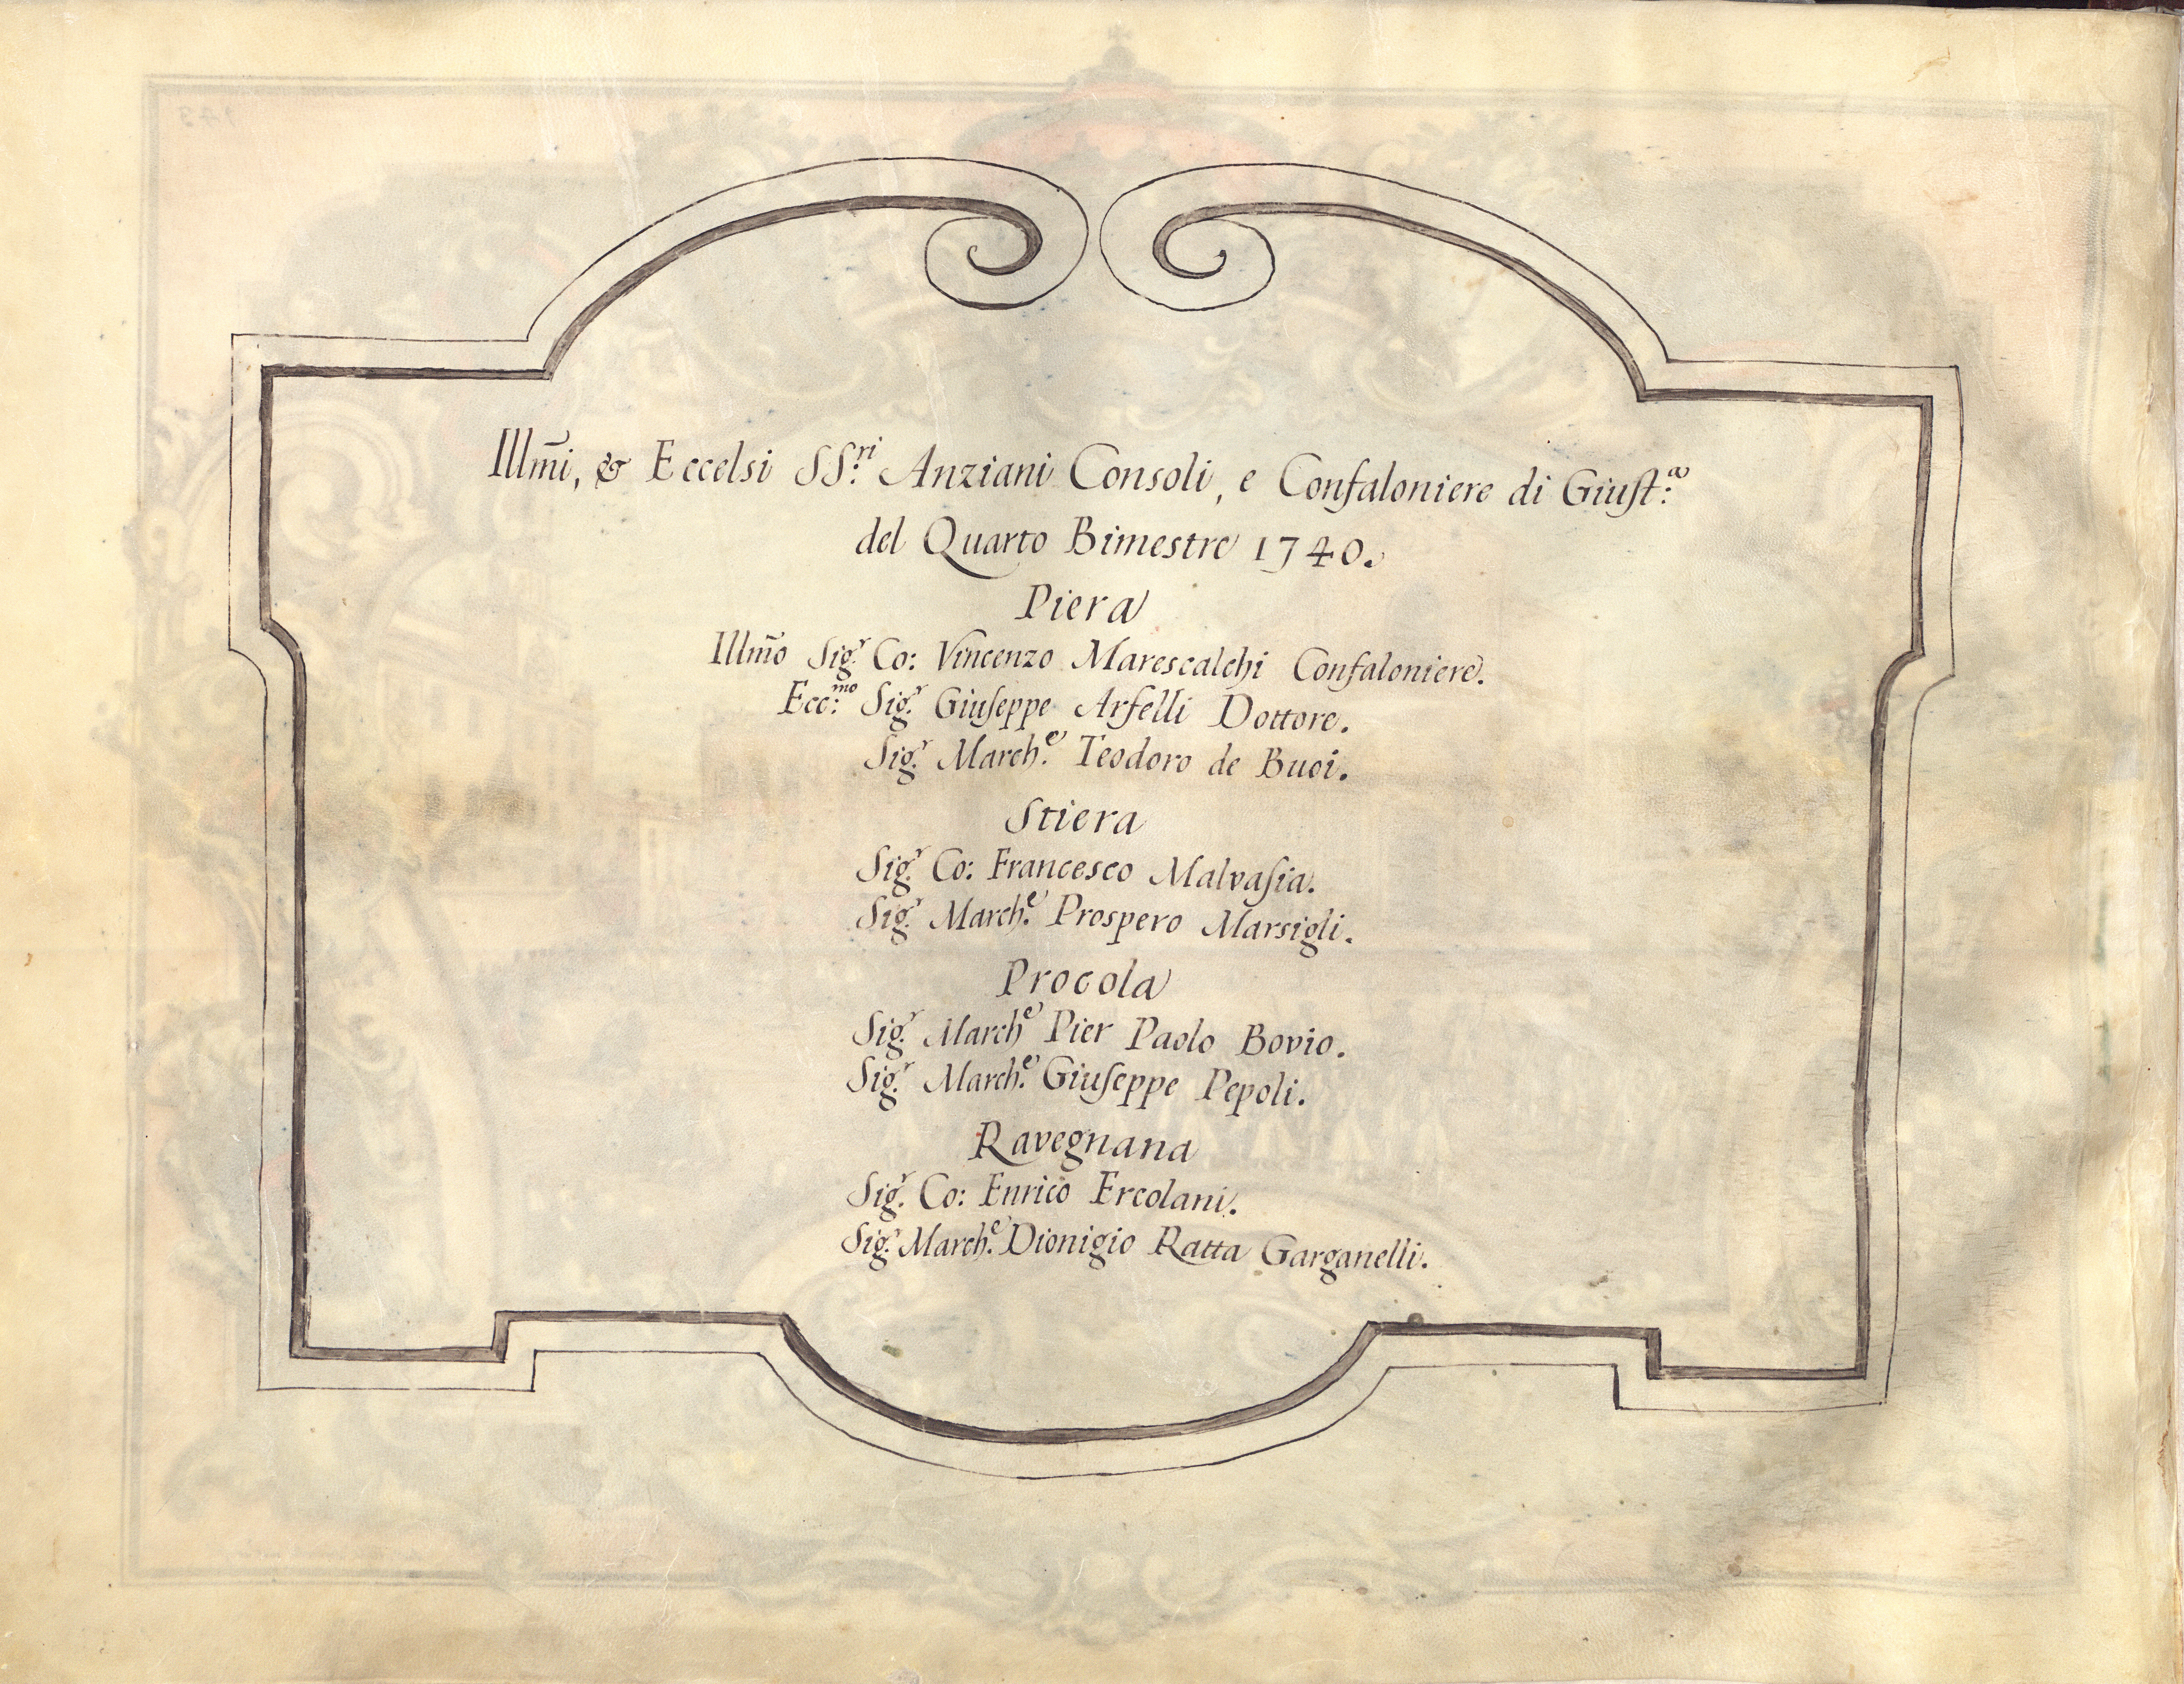 Illm̃i, & Eccelsi SS.ri Anziani Consoli, e Confaloniere di Giust:a
del Quarto Bimestre 1740.
Piera
Illm̃o Sig.r Co: Vincenzo Marescalchi Confaloniere.
Ecc:mo Sig.r Giuseppe Arfelli Dottore.
Sig.r March.e Teodoro de Buoi.
Stiera
Sig.r Co: Francesco Malvasia.
Sig.r March.e Prospero Marsigli.
Procola
Sig.r March.e Pier Paolo Bovio.
Sig.r March.e Giuseppe Pepoli.
Ravegnana
Sig.r Co: Enrico Ercolani.
Sig.r March.e Dionigio Ratta Garganelli.